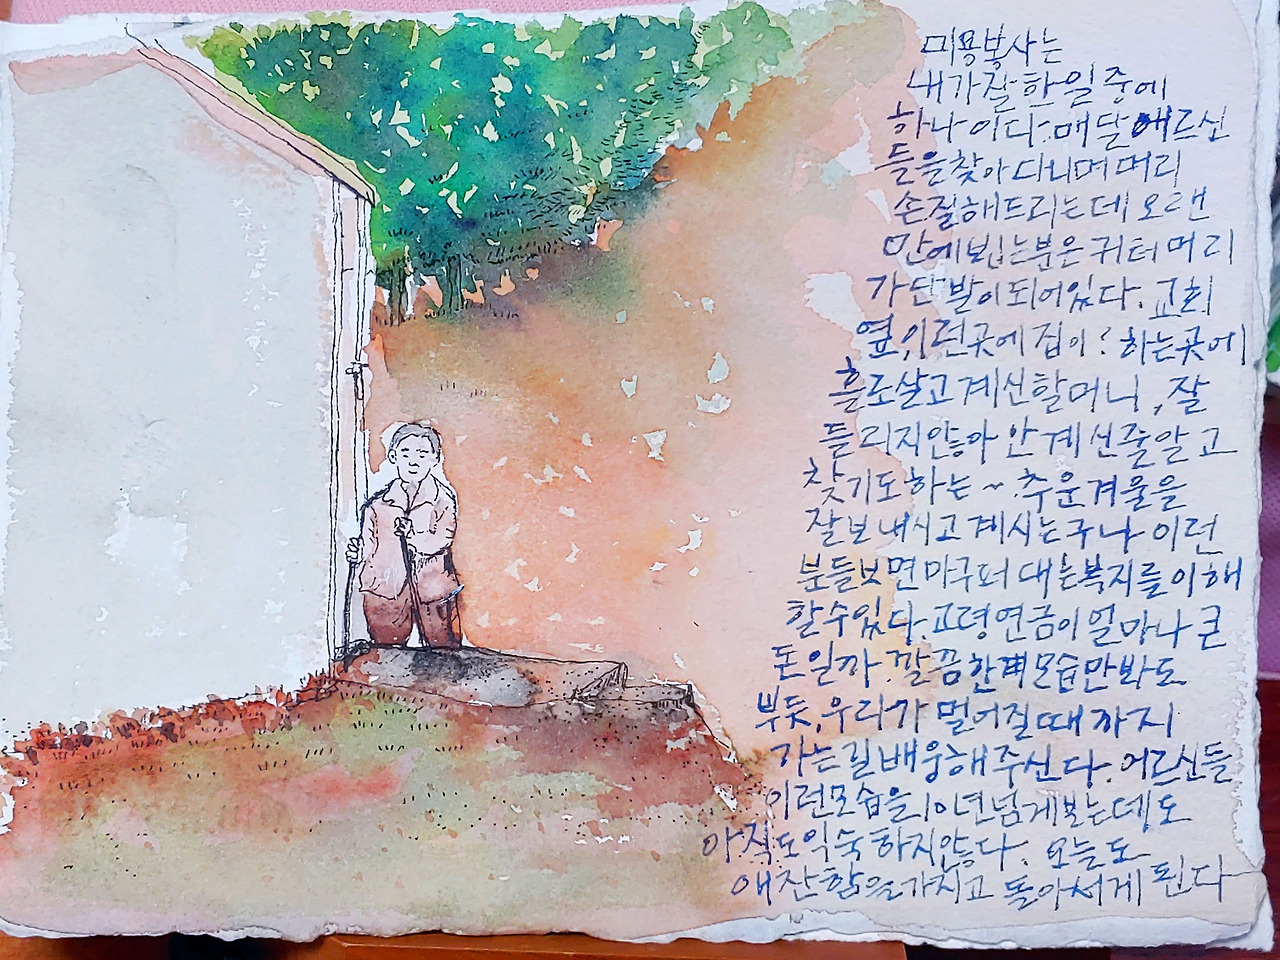 미용봉사는
내가 잘한일 중에
하나이다. 매달 어르신
들을 찾아다니며 머리
손질해드리는데 오랜
만에 뵙는분은 귀터머리
가 단발이 되어있다. 교회
옆, 이런곳에 집이? 하는곳에
홀로 살고계신 할머니, 잘
들리지않아 안계신줄알고
찾기도 하는~. 추운겨울을
잘보내시고 계시는구나 이런
분들보면 마구퍼대는복지를 이해
할수있다. 고령연금이 얼마나 큰
돈일까. 깔끔한 모습만봐도
뿌듯, 우리가 멀어질때까지
가는길 배웅해주신다. 어르신들
이런모습을 10년넘게보는데도
아직도 익숙하지않다. 오늘도
애잔함을가지고 돌아서게 된다